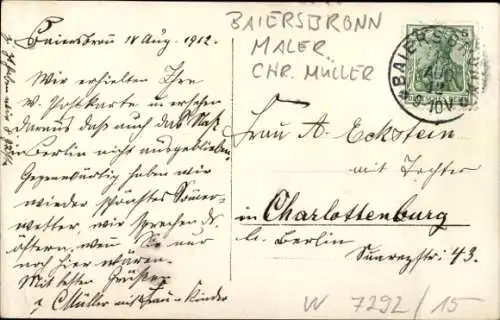 Baiersbronn 18 Aug. 1912.
Wir erhielten Ihre
w. Postkarte u. ersehen
daraus daß auch das Naß
in Berlin nicht ausgeblieben.
Gegenwärtig haben wir
wieder schönstes Sommer-
wetter, wir sprechen ds.
öftern, wenn Sie nur
noch hier wären.
Mit besten Grüßen
C Müller mit Frau u Kinder
BAIERSBRONN
MALER
CHR. MÜLLER
BAIERSBRONN
AUG
12
9-10V
Frau A. Eckstein
mit Tochter
in Charlottenburg
b. Berlin
Suarezstr: 43.
W 7292/15